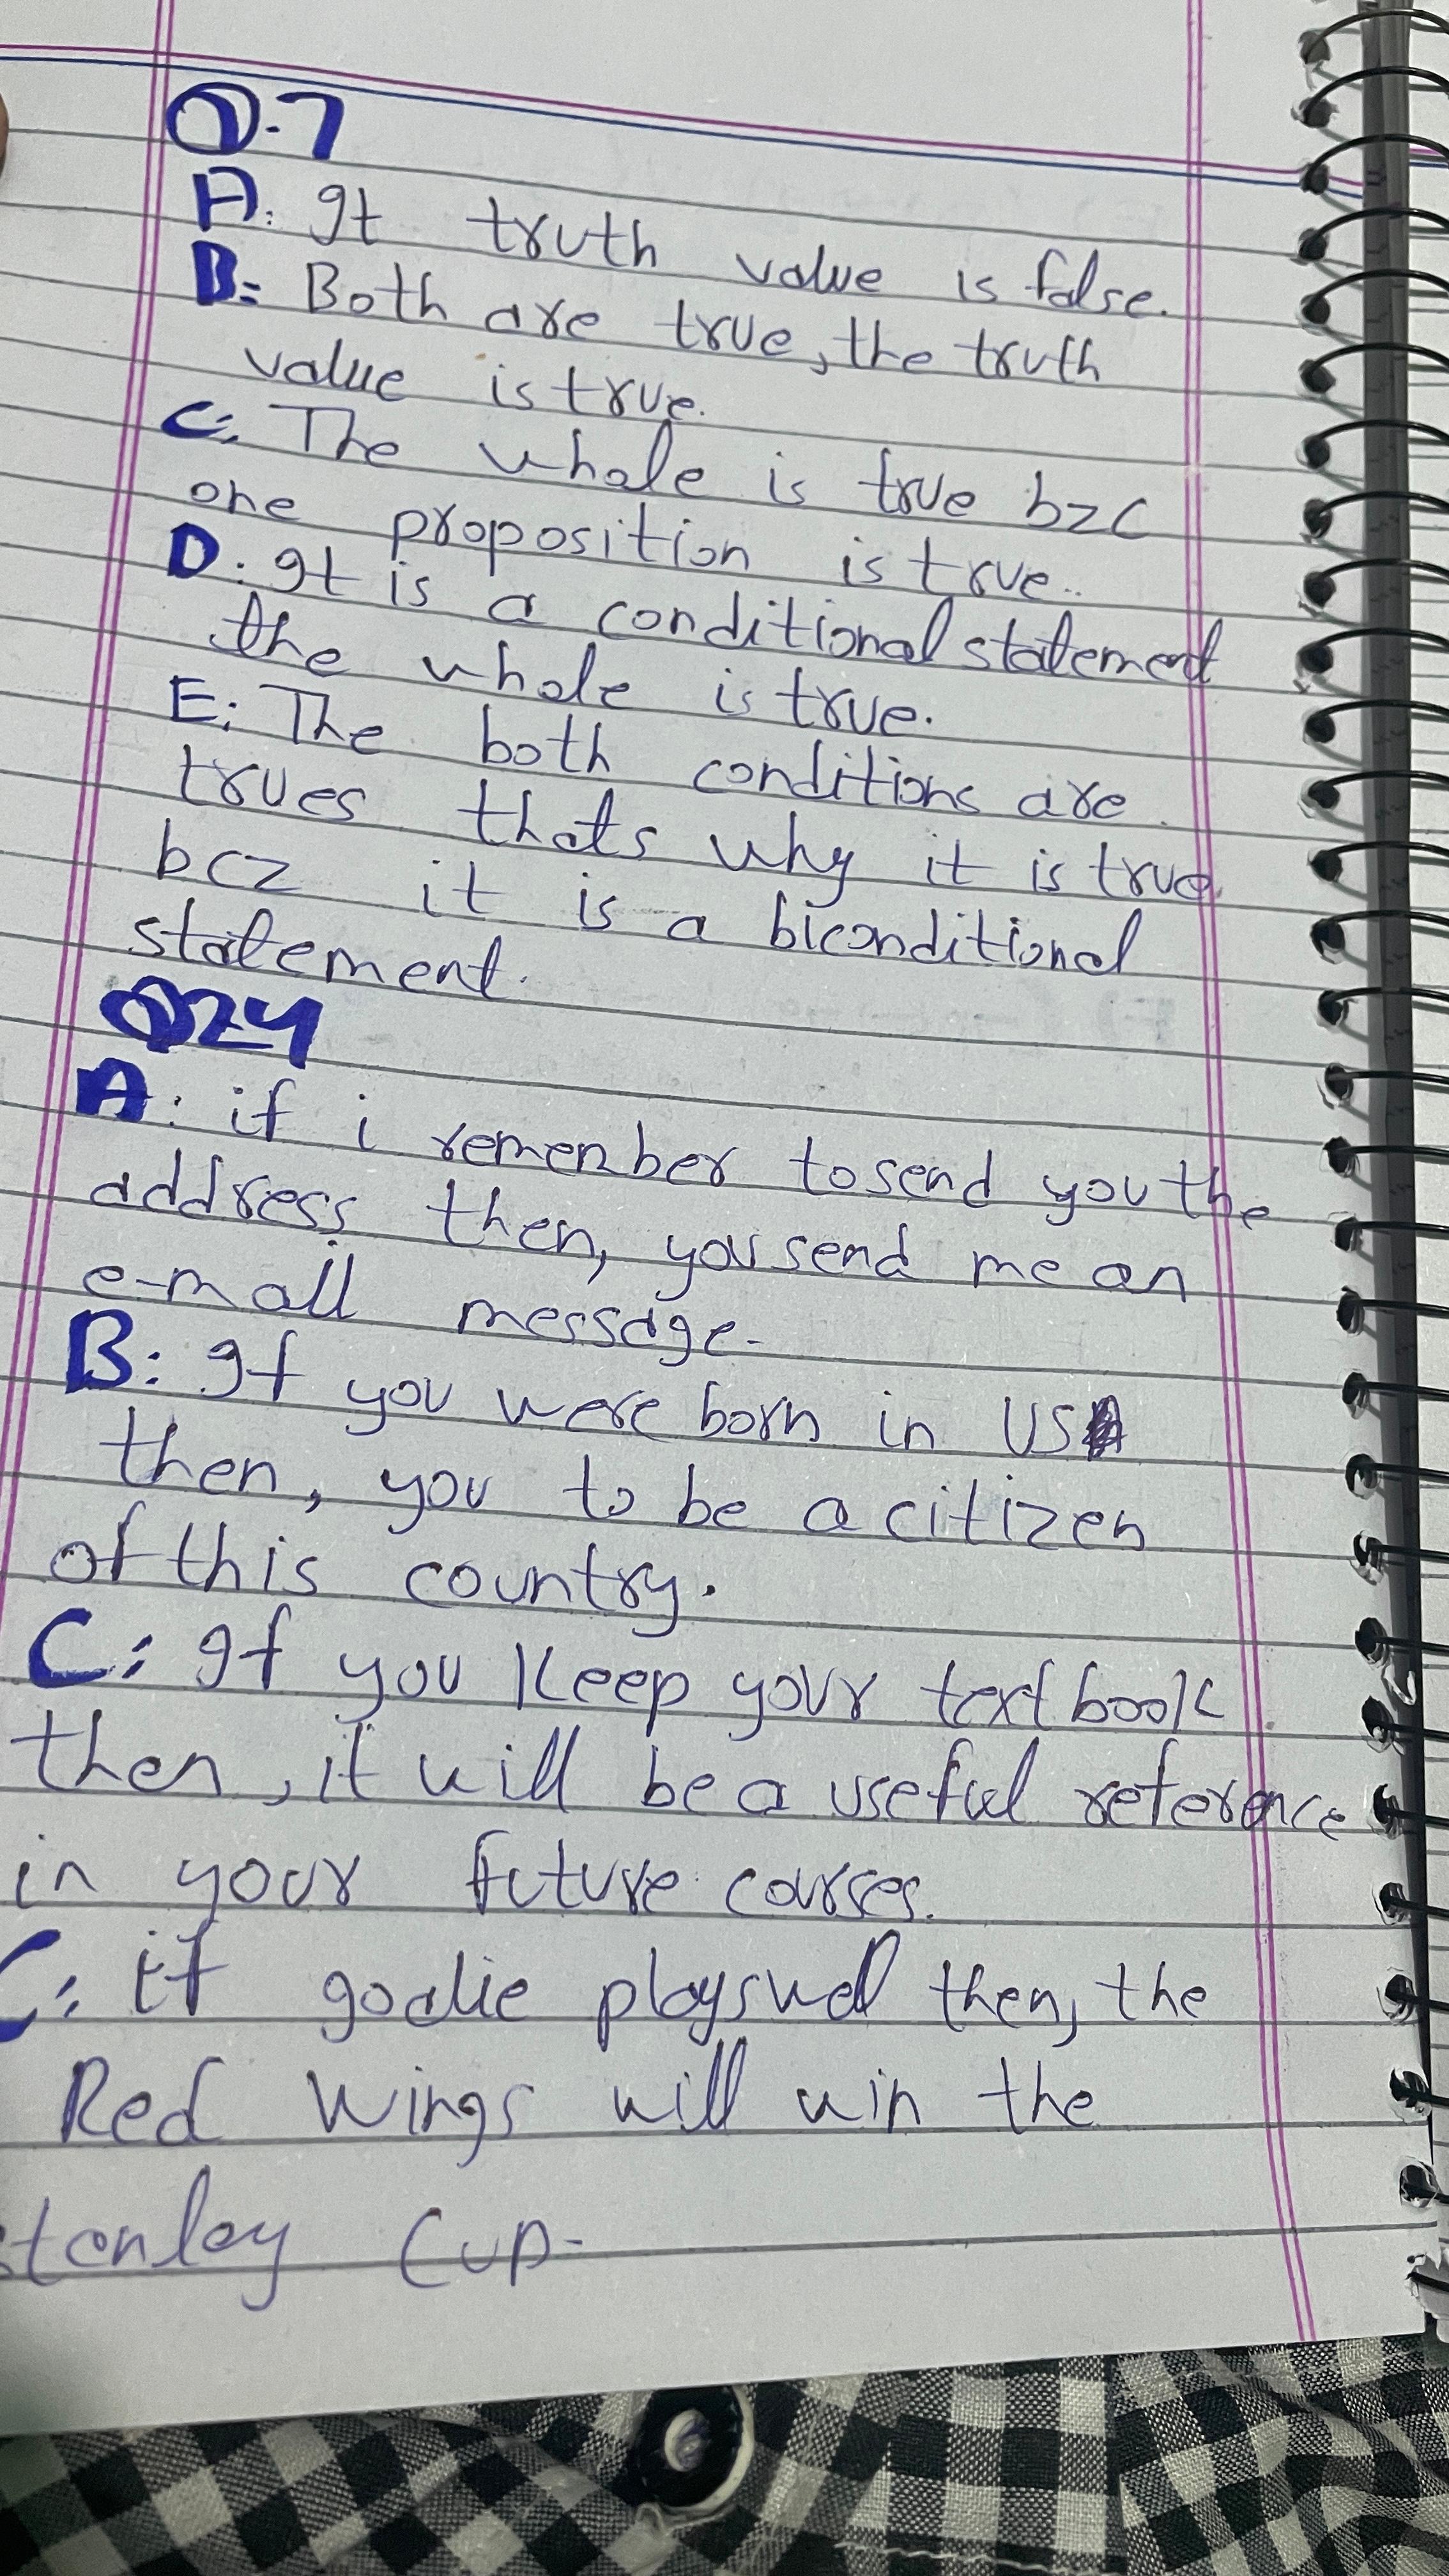 Q.7
A: It truth value is false.
B: Both are true, the truth
value is true.
C: The whole is true bzc
one proposition is true..
D: It is a conditional statement
the whole is true.
E: The both conditions are
trues thats why it is true
bcz it is a biconditional
statement.
Q24
A: if i remember to send you the
address then, you send me an
e-mail message-
B: If you were born in US
then, you to be a citizen
of this country.
C: If you keep your textbook
then, it will be a useful reference
in your future courses.
C: if goalie plays well then, the
Red Wings will win the
stanley Cup-